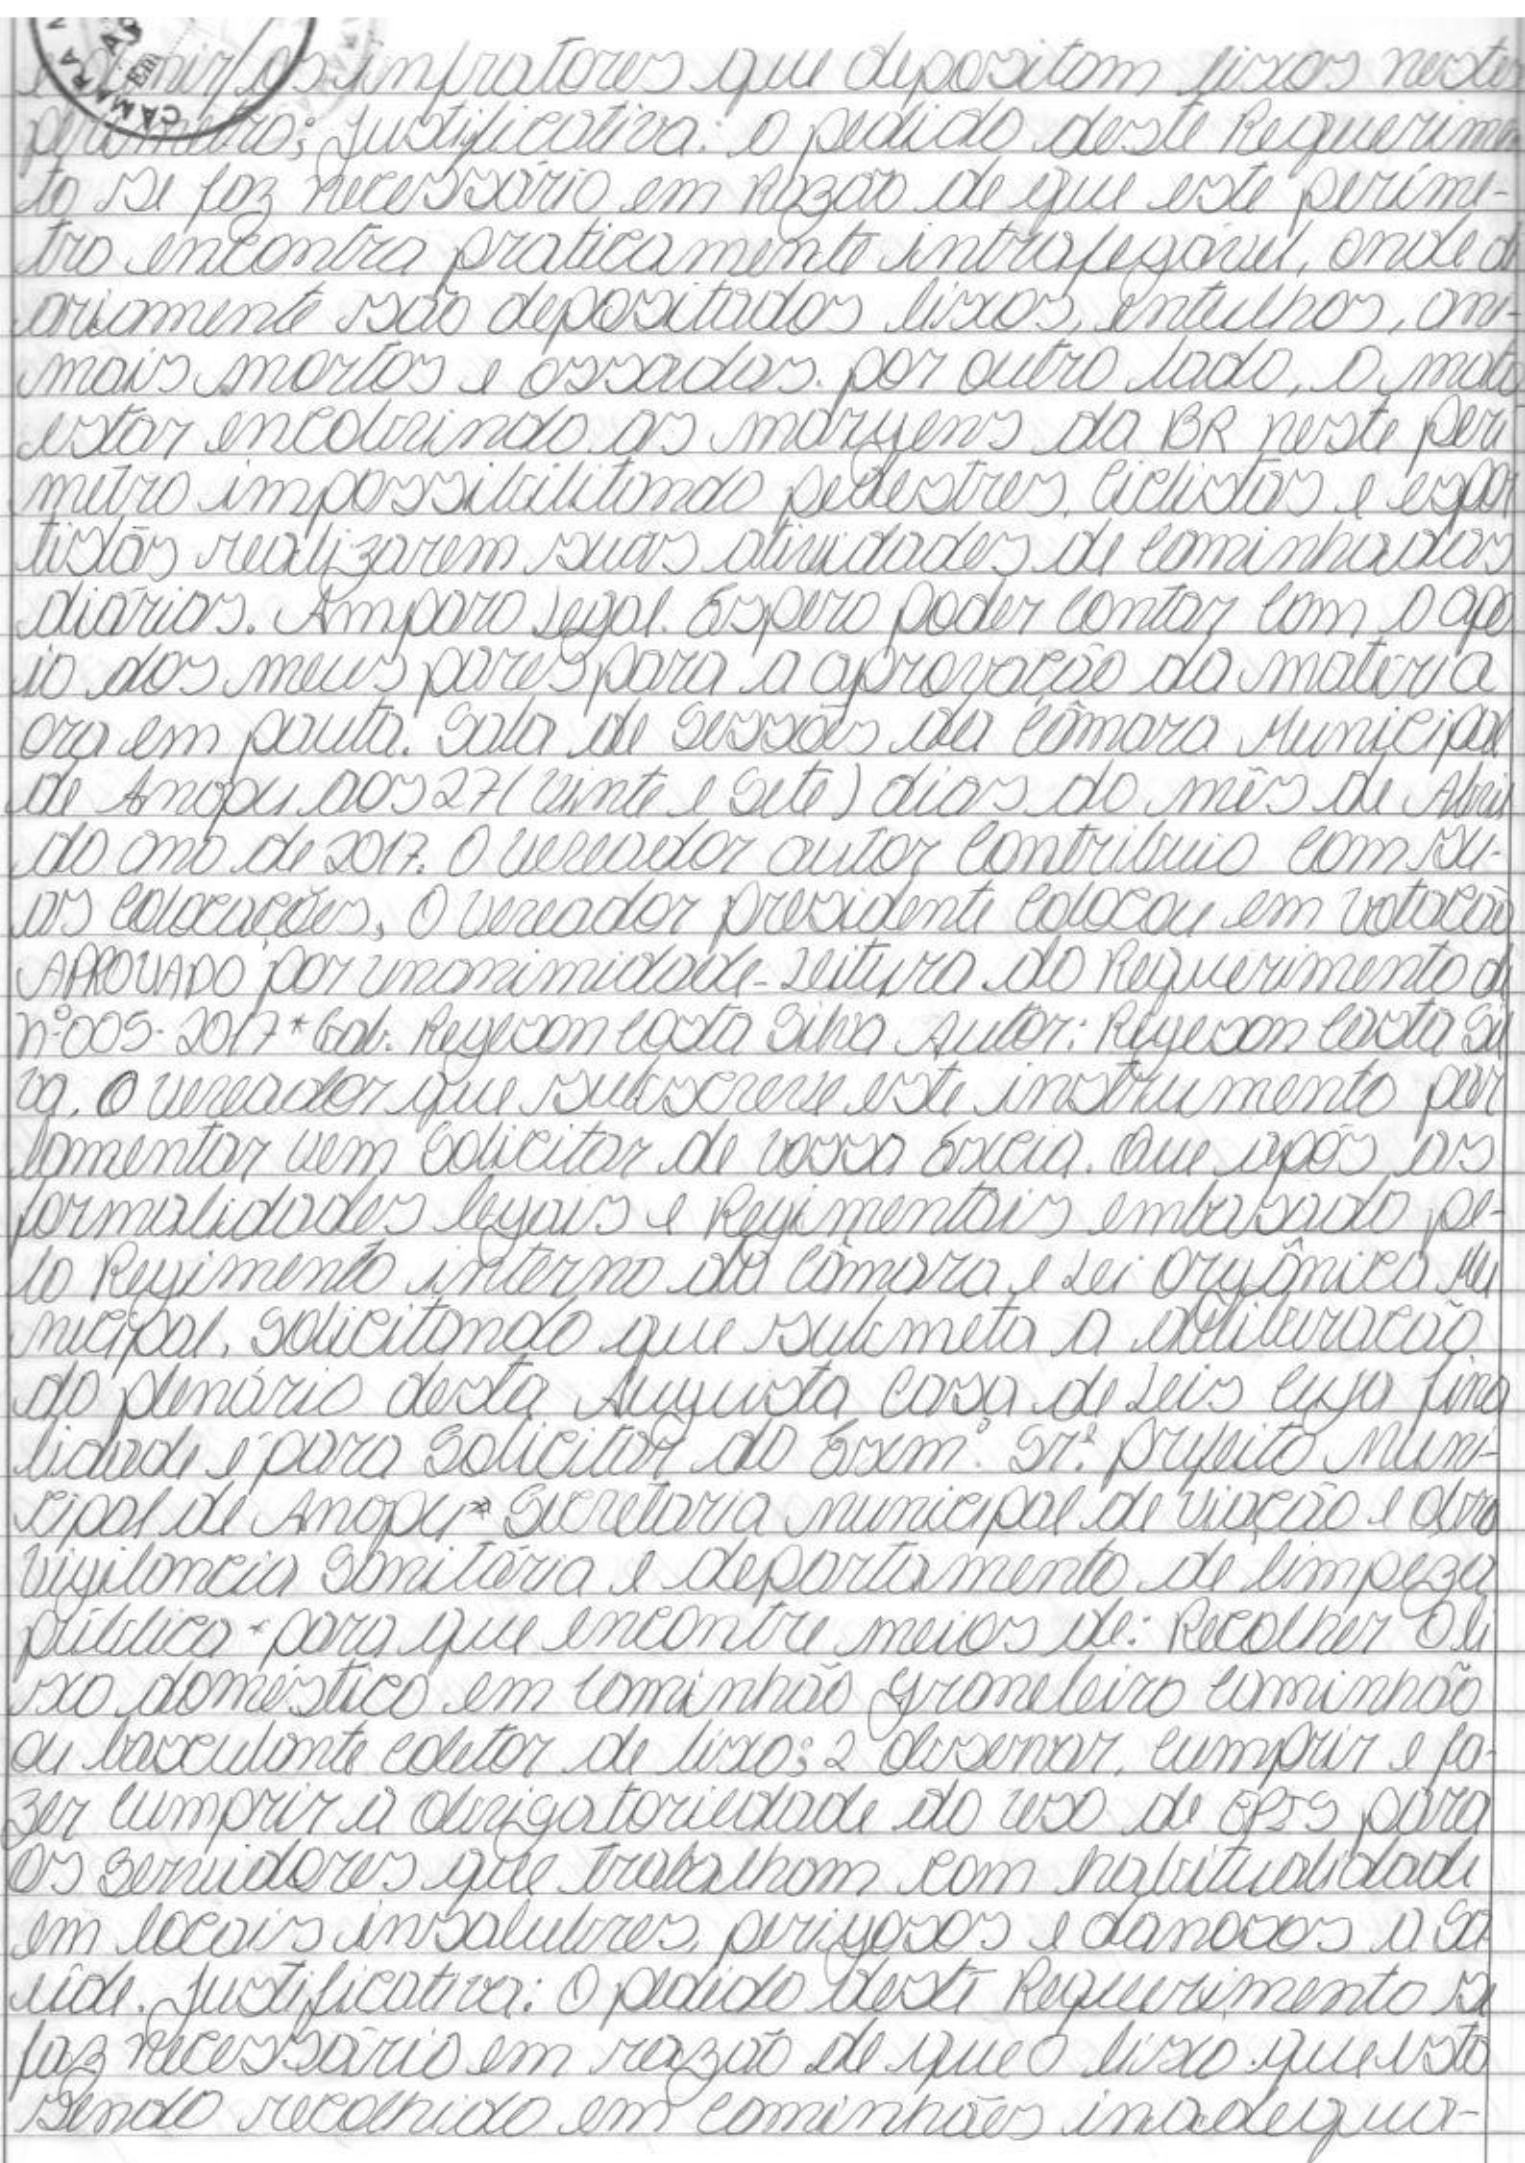 CAMARA
Em
os infratores que depositam lixos neste
perímetro; Justificativa: o pedido deste Requerimen
to se faz necessário em Razão de que este períme-
tro encontra praticamente intrafegável, onde di
ariamente são depositados lixos, entulhos, ani-
mais mortos e ossadas. por outro lado, o mato
estar encobrindo as margens da BR neste perí
metro impossibilitando pedestres, ciclistas e espor
tistas realizarem suas atividades de caminhadas
diárias. Amparo Legal. Espero poder contar com o apo
io dos meus pares para a aprovação da matéria
ora em pauta. Sala de Sessões da Câmara Municipal
de Anapu aos 27 (vinte e Sete) dias do mês de Abril
do ano de 2017. O vereador autor contribuio com su-
as colocações. O vereador presidente colocou em votação
APROVADO por unanimidade - Leitura do Requerimento de
nº 005-2017 * Gab: Regeson Costa Silva Autor: Regeson Costa Sil
va. O vereador que subscreve este instrumento par
lamentar vem Solicitar de vossa Excia. Que após as
formalidades legais e Regimentais embasado pe-
lo Regimento interno da Câmara e Lei Orgânica Mu
nicipal. Solicitando que submeta a deliberação
do plenário desta Augusta Casa de Leis cuja fina
lidade é para Solicitar do Exmº Srº prefeito Muni-
cipal de Anapu * Secretaria Municipal de Viação e obra
Vigilancia Sanitária e departamento de limpeza
pública * para que encontre meios de: Recolher O li
xo doméstico em caminhão graneleiro caminhão
ou basculante coletor de lixo; 2 observar, cumprir e fa-
zer cumprir a obrigatoriedade do uso de EPIS para
os servidores que trabalham com habitualidade
em locais insalubres, perigosos e danosos a Sa
úde. Justificativa: O pedido deste Requerimento se
faz necessário em razão de que O lixo que esta
sendo recolhido em caminhões inadequa-